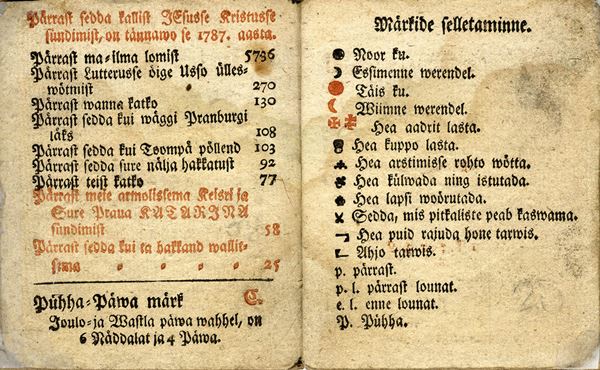 Pärrast sedda kallist JEsusse Kristusse
sündimist, on tännawo se 1787. aasta.
Pärrast ma-ilma lomist 5736
Pärrast Lutterusse õige Usso ülles-
wõtmist 270
Pärrast wanna katko 130
Pärrast sedda kui wäggi Pranburgi
läks 108
Pärrast sedda kui Toompä põllend 103
Pärrast sedda sure nälja hakkatust 92
Pärrast teist katko 77
Pärrast meie armolissema Keisri ja
Sure Praua KATARINA
sündimist 58
Pärrast sedda kui ta hakkand wallit-
sema 25
Pühha-Päwa märk C.
Joulo- ja Wastla päwa wahhel, on
6 Näddalat ja 4 Päwa.
Märkide selletaminne.
Noor ku.
Essimenne werendel.
Täis ku.
Wiimne werendel.
Hea aadrit lasta.
Hea kuppo lasta.
Hea arstimisse rohto wõtta.
Hea külwada ning istutada.
Hea lapsi woörutada.
Sedda, mis pitkaliste peab kaswama.
Hea puid rajuda hone tarwis.
Ahjo tarwis.
p. pärrast.
p. l. pärrast lounat.
e. l. enne lounat.
P. Pühha.